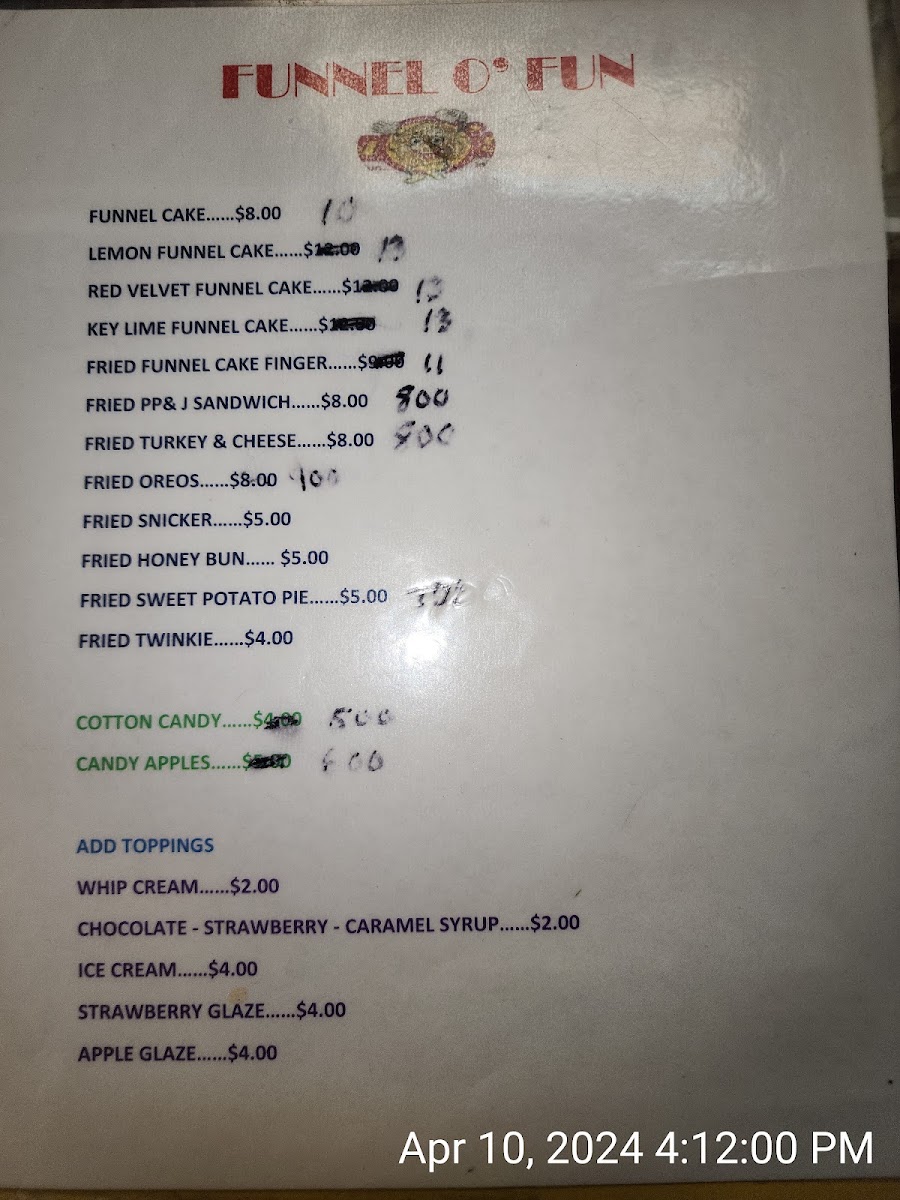 FUNNEL O' FUN
FUNNEL CAKE......$8.00 10
LEMON FUNNEL CAKE......$12.00 13
RED VELVET FUNNEL CAKE......$12.00 13
KEY LIME FUNNEL CAKE......$12.00 13
FRIED FUNNEL CAKE FINGER......$9.00 11
FRIED PP& J SANDWICH......$8.00 800
FRIED TURKEY & CHEESE......$8.00 800
FRIED OREOS......$8.00 900
FRIED SNICKER......$5.00
FRIED HONEY BUN...... $5.00
FRIED SWEET POTATO PIE......$5.00
FRIED TWINKIE......$4.00
COTTON CANDY......$4.00 500
CANDY APPLES......$5.00 600
ADD TOPPINGS
WHIP CREAM......$2.00
CHOCOLATE - STRAWBERRY - CARAMEL SYRUP......$2.00
ICE CREAM......$4.00
STRAWBERRY GLAZE......$4.00
APPLE GLAZE......$4.00
Apr 10, 2024 4:12:00 PM